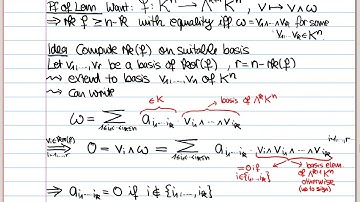 Pf of Lemma Want: f: Kⁿ → Λ^{k+1} Kⁿ, v ↦ v∧ω
⇒ rk f ≥ n-k with equality iff ω = v₁∧…∧v_k for some v₁,…,v_k ∈ Kⁿ
Idea Compute rk(f) on suitable basis
Let v₁,…,v_r be a basis of ker(f), r = n - rk(f)
⇝ extend to basis v₁,…,v_n of Kⁿ
⇝ Can write
ω = Σ_{1≤i₁<…<i_k≤n} a_{i₁…i_k} v_{i₁}∧…∧v_{i_k}
∈K basis of Λ^k Kⁿ
v_i∈ker(f) i=1,…,r ⇒ 0 = v_i∧ω = Σ_{1≤i₁<…<i_k≤n} a_{i₁…i_k} v_i∧v_{i₁}∧…∧v_{i_k} i=1,…,r
=0 if i∈{i₁,…,i_k} basis elem. of Λ^{k+1}Kⁿ otherwise (up to sign)
⇒ a_{i₁…i_k} = 0 if i ∉ {i₁,…,i_k}